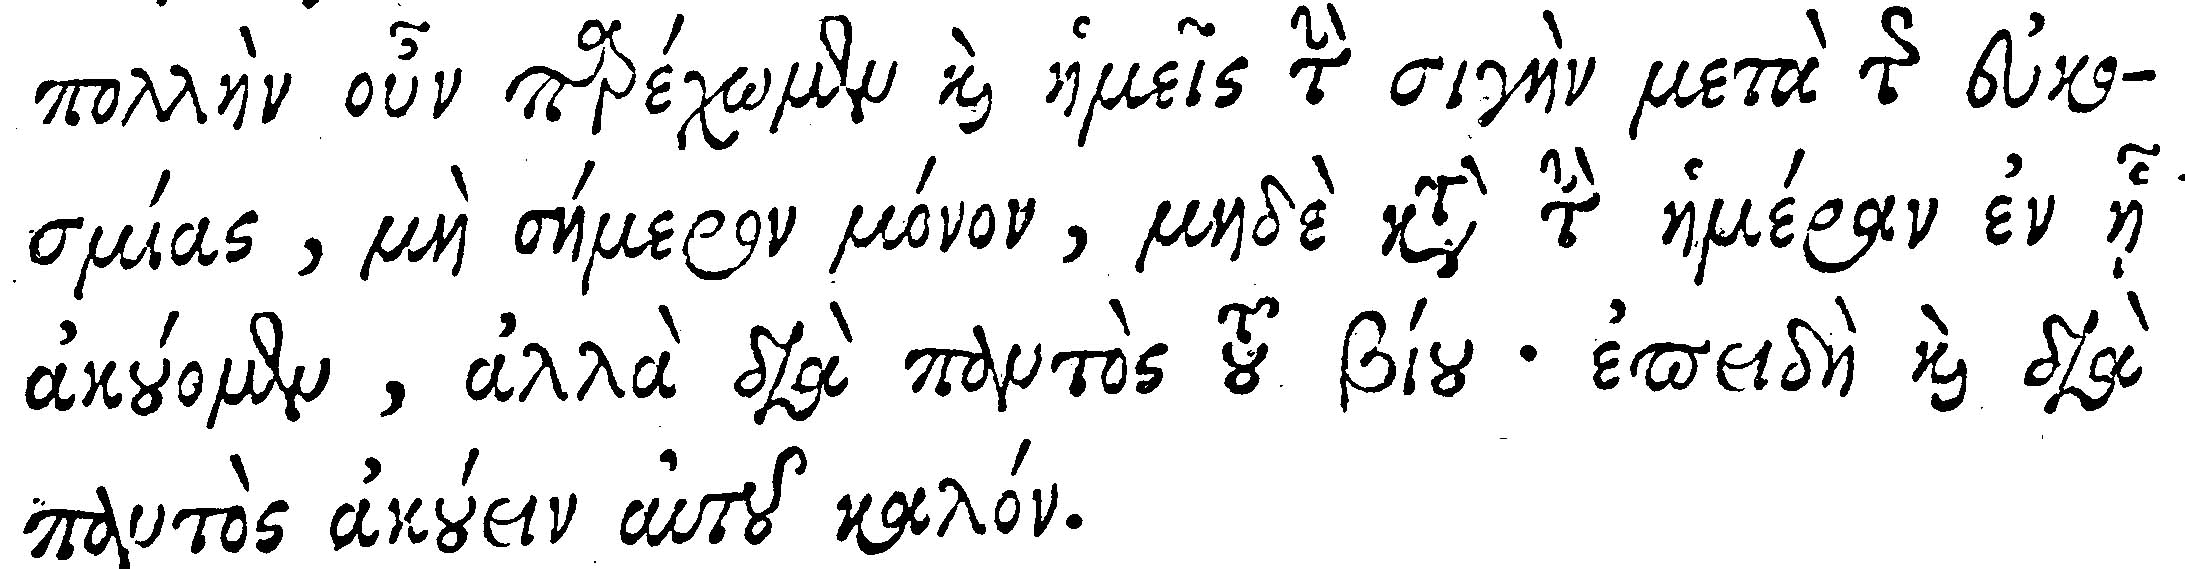 πολλὴν οὖν παρέχωμεν καὶ ἡμεῖς τὴν σιγὴν μετὰ τῆς εὐκο-
σμίας, μὴ σήμερον μόνον, μηδὲ κατὰ τὴν ἡμέραν ἐν ᾗ
ἀκούομεν, ἀλλὰ διὰ παντὸς τοῦ βίου· ἐπειδὴ καὶ διὰ
παντὸς ἀκούειν αὐτοῦ καλόν.